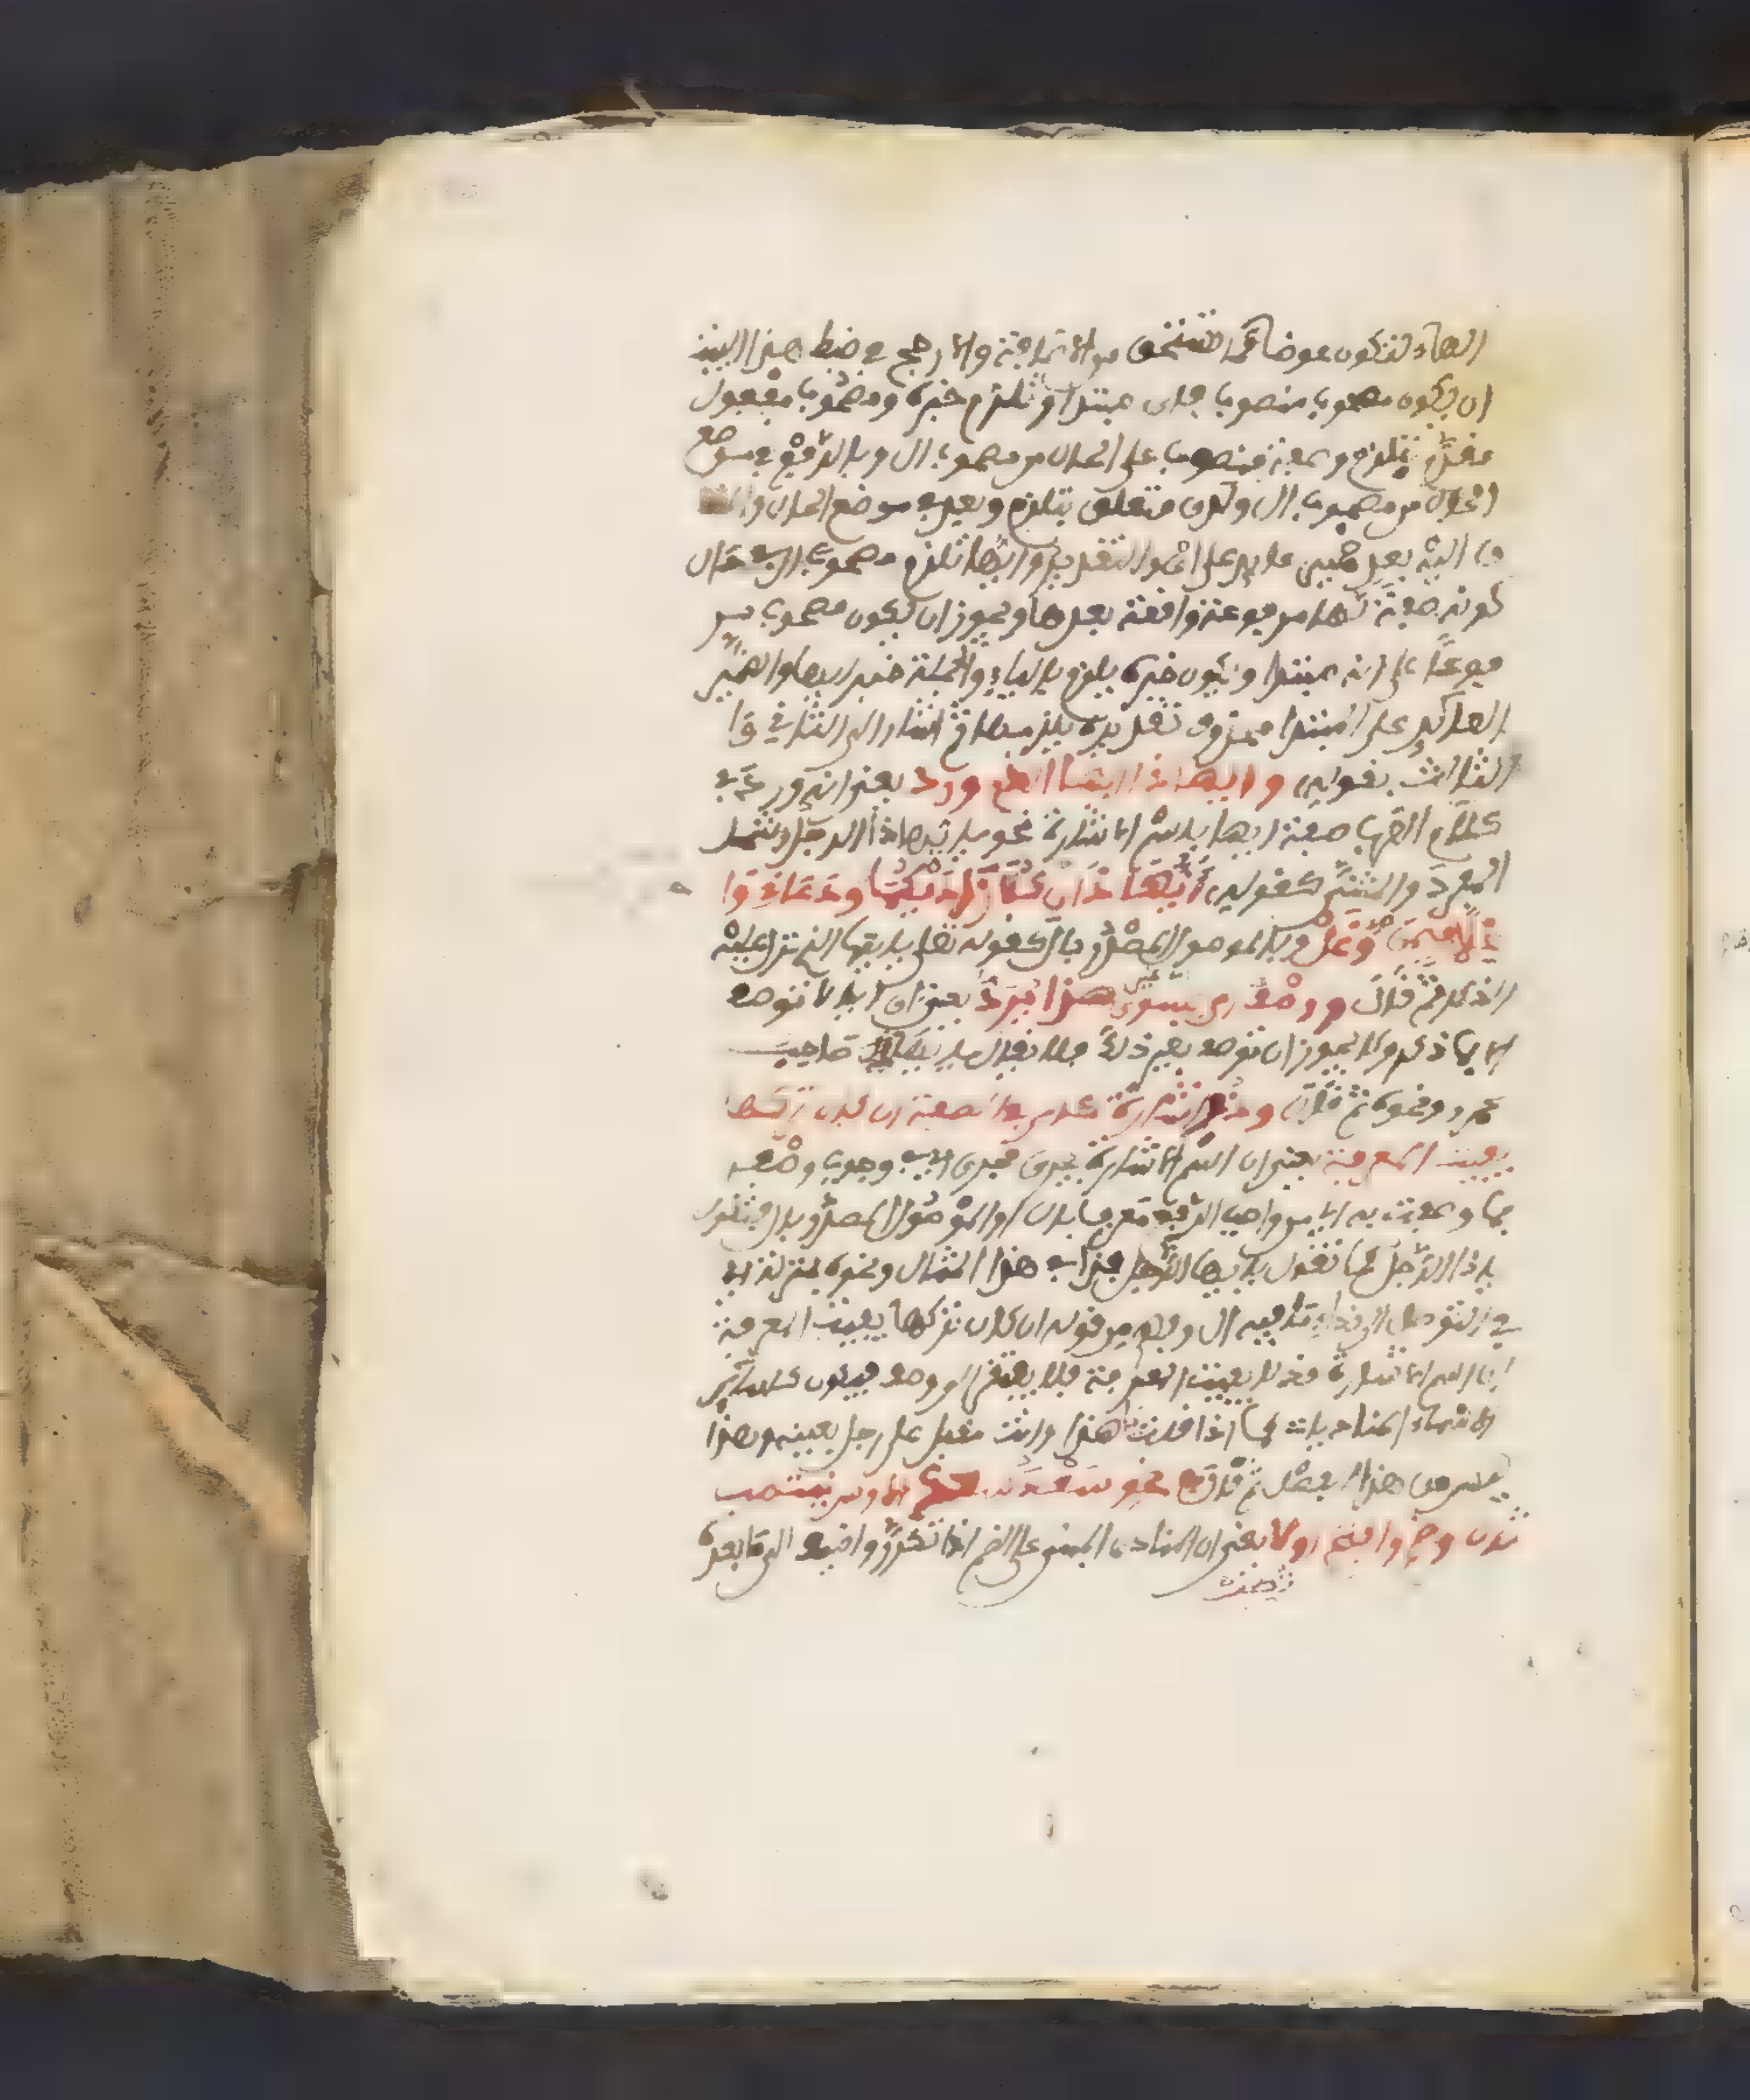 الهاء لتكون عوضا مما تستحق من الاضافة والارجح في ضبط هذا البيت
ان يكون مصحوب منصوبا فأي مبتدأ وتلزم خبره ومصحوب مفعول
مقدم بتلزم وصفة منصوب على الحال من مصحوب ال وبالرفع في موضع
الحال من مصحوب ال وكذا متعلق بتلزم وبعد في موضع الحال والمضاف
اليه بعد ضمير عائد على أي والتقدير وايها تلزم مصحوب ال في حال
كونه صفة لها مرفوعة واقعة بعدها ويجوز ان يكون مصحوب مر
فوعا على انه مبتدا ويكون خبره يلزم بالياء والجملة خبر ايها والضمير
العائد على المبتدا محذوف تقديره يلزمها ثم اشار الى الثاني وا
الثالث بقوله وايها ذا ايها الذي ورد يعني انه ورد في
كلام العرب صفة ايها باسم الاشارة نحو يا ايها ذا الرجل وشمل
المفرد والمثنى كقوله أيهذان كلا زاديكما ودعاني وا
غلا فيمن وغل وبالموصول المصدر بال كقوله تعلى يا ايها الذي نزل عليه
الذكر ثم قال ووصف أي بسوى هذا يرد يعني ان ايا لا توصف
الا بما ذكر ولا يجوز ان توصف بغير ذلك فلا يقال يا ايها صاحب
عمرو ونحوه ثم قال وذو اشارة كأي في الصفة ان كان تركها
يفيت المعرفة يعني ان اسم الاشارة يجرى مجرى اي في وجوب وصفه
بما وصفت به اي من واجب الرفع معرفا بال او الموصول المصدر بال فتقول
يا ذا الرجل كما تقول يا ايها الرجل فذا في هذا المثال ونحوه بمنزلة اي
في التوصل الى نداء ما فيه ال وفهم من قوله ان كان تركها يفيت المعرفة
ان اسم الاشارة قد لا يفيت المعرفة فلا يفتقر الى وصف فيكون كسائر
الاسماء المناديات كما اذا قلت يا هذا وانت مقبل على رجل بعينه وهذا
ثم قال في نحو سعد سعد الاوس ينتصب
ثان وضم وافتح اولا يعني ان المنادى المبني على الضم اذا تكرر واضيف الى ما بعده